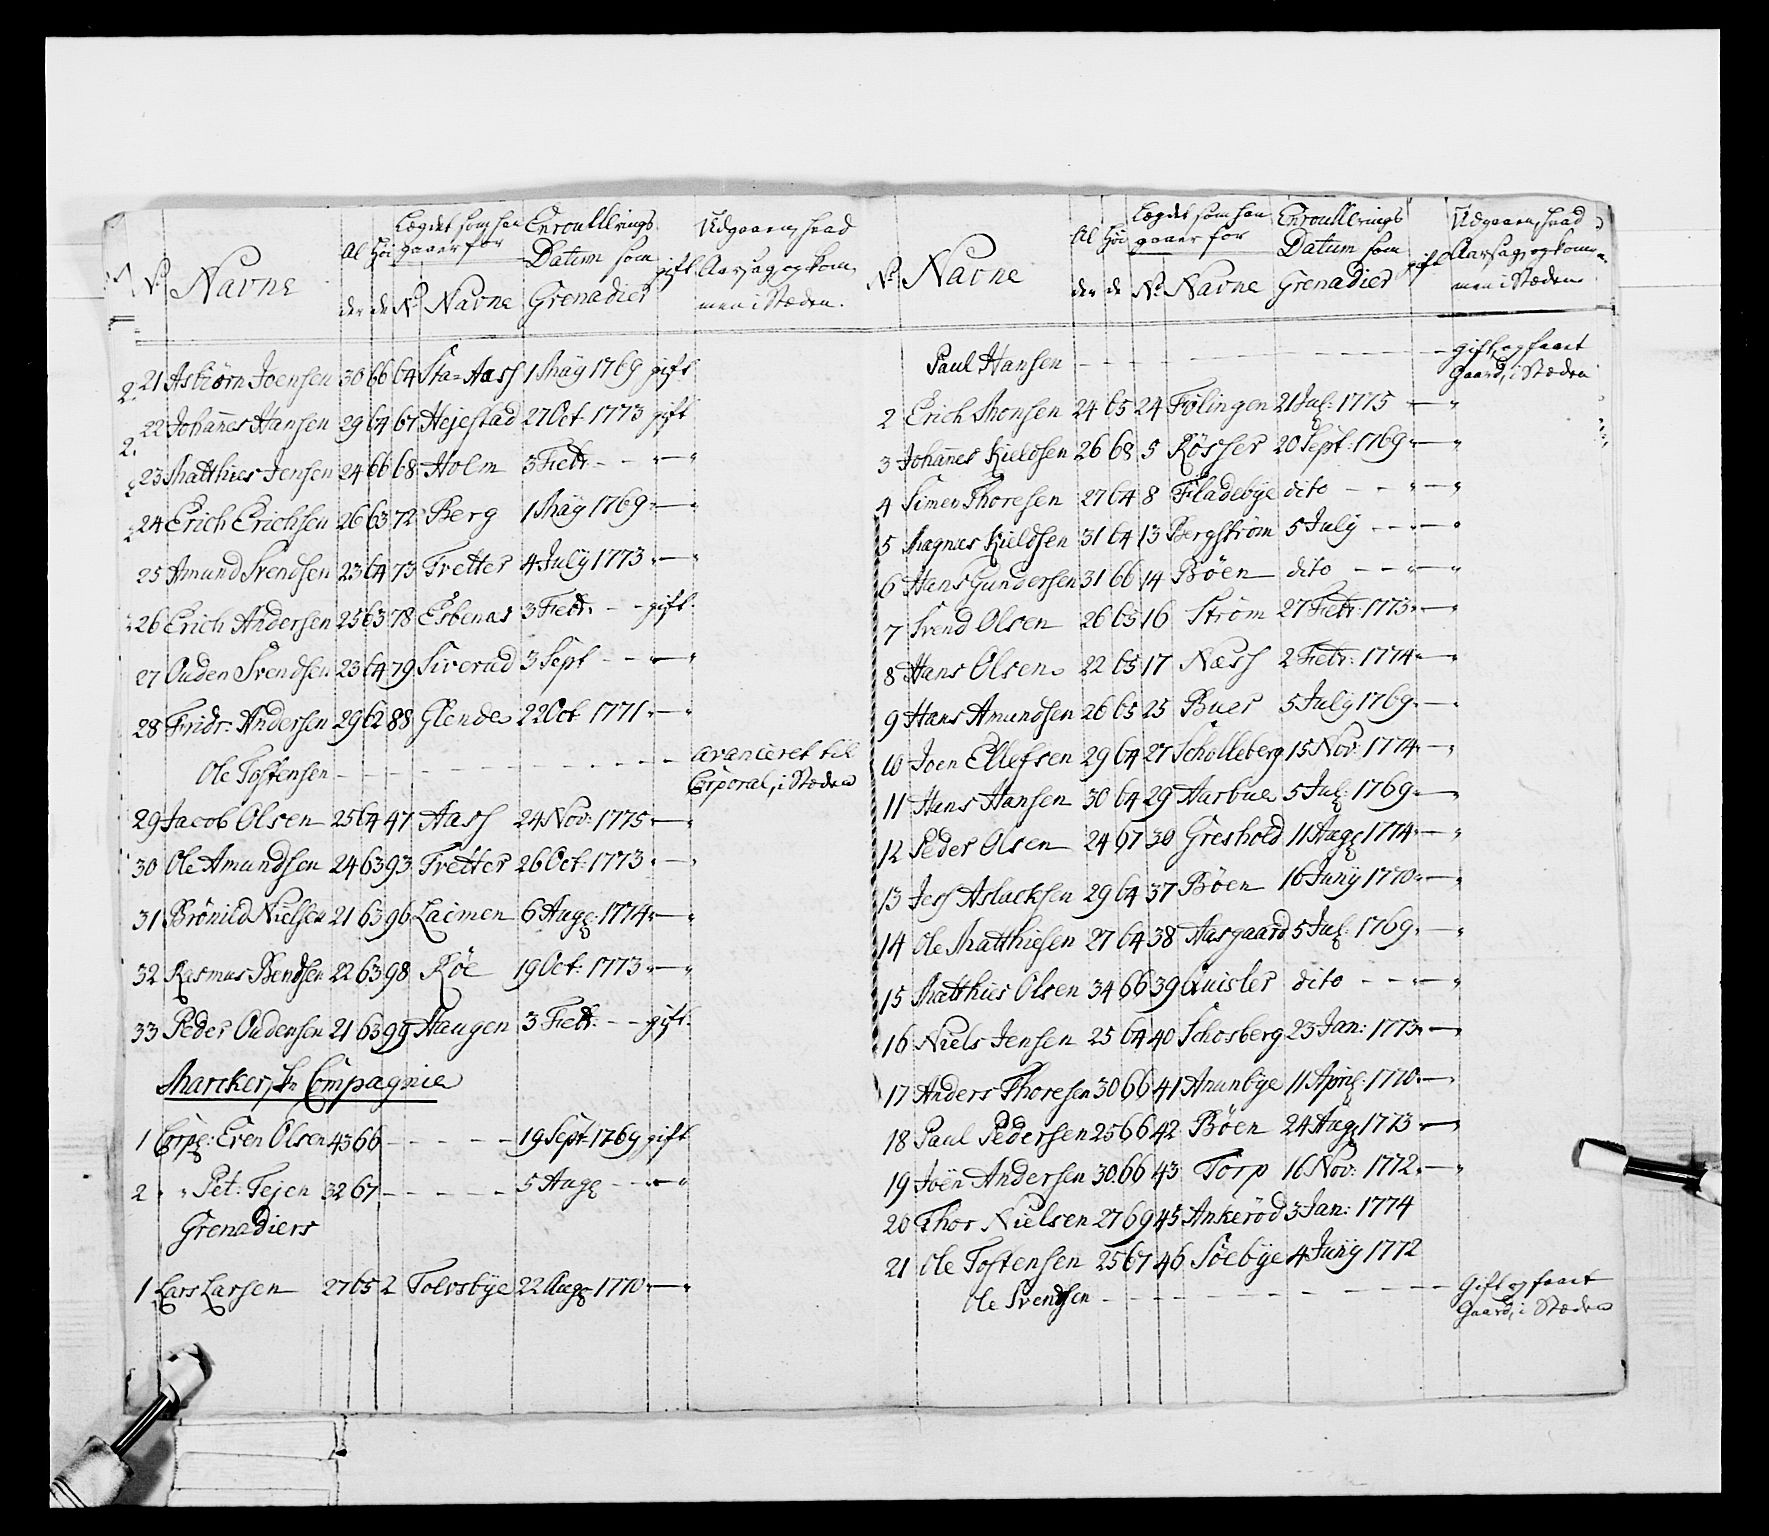 No Navne Al der Höi de Lægdet som han gaaer for No Navne Enroullerings Datum som Grenadier gift Udgaaen, hvad Aarsag, og kommen i Stæden.
21 Asbiörn Joensen 30 66 64 Sta=Aass 1 May 1769 gift
22 Johannes Hansen 29 64 67 Hejestad 27 Oct 1773 gift
23 Matthies Jensen 24 66 68 Holm 3 Febr - - " — "
24 Erich Erichsen 26 63 72 Berg 1 May 1769 " — "
25 Amund Svendsen 23 64 73 Tretter 4 July 1773 " — "
26 Erich Andersen 25 63 78 Esbenas 3 Febr - - gift
27 Ouden Svendsen 23 64 79 Siverud 3 Sept - - " — "
28 Fridr: Andersen 29 62 88 Glende 22 Oct 1771 " — "
Ole Tostensen - - - - - - - - - avanceret til
Corporal, i Stæden
29 Jacob Olsen 25 64 47 Aass 24 Nov: 1775 " — "
30 Ole Amundsen 24 63 93 Tretter 26 Oct: 1773 " — "
31 Brönild Nielsen 21 63 96 Laemen 6 Aug: 1774 " — "
32 Rasmus Bendsen 22 63 98 Röe 19 Oct: 1773 " — "
33 Peder Oudensen 21 63 99 Haugen 3 Febr: - - gift
Marcker, Compagnie
1 Corpl: Even Olsen 43 66 - - - - - 19 Sept 1769 gift
2 " " Pet: Tejen 32 67 - - - - - 5 Aug - - " — "
Grenadiers
1 Lars Larsen 27 65 2 Tolvsbye 22 Aug 1770 " — "
No Navne Al der Höi de Lægdet som han gaaer for No Navne Enroullerings Datum som Grenadier gift Udgaaen, hvad Aarsag, og kommen i Stæden
Paul Hansen - - - - - - - - - gift, og faaet
Gaard, i Stæden
2 Erich Monsen 24 65 24 Fölingen 21 Jul: 1775 — "
3 Johannes Kieldsen 26 68 5 Rösser 20 Sept: 1769 " — "
4 Simen Thoresen 27 64 8 Fladebye dito - - " — "
5 Magnus Kieldsen 31 64 13 Bergström 5 July - - " — "
6 Hans Gundersen 31 66 14 Böen dito - - " — "
7 Svend Olsen 26 65 16 Ström 27 Febr: 1773 " — "
8 Hans Olsen 22 65 17 Næss 2 Febr: 1774 " — "
9 Hans Amundsen 26 65 25 Buer 5 July 1769 " — "
10 Joen Ellefsen 29 64 27 Scholleberg 15 Nov: 1774 " — "
11 Hans Hansen 30 64 29 Aarbue 5 Jul: 1769 " — "
12 Peder Olsen 24 67 30 Greshold 11 Aug 1774 " — "
13 Jess Aslacksen 29 64 37 Böen 16 Juny 1770 " — "
14 Ole Matthiesen 27 64 38 Aasgaard 5 Jul: 1769 " — "
15 Matthies Olsen 34 66 39 Quisler dito - - " — "
16 Niels Jensen 25 64 40 Schosberg 23 Jan: 1773 " — "
17 Anders Thoresen 30 66 41 Anunbye 11 April 1770 " — "
18 Paul Pedersen 25 66 42 Böen 24 Aug 1773 " — "
19 Joën Andersen 30 66 43 Torp 16 Nov: 1772 " — "
20 Thor Nielsen 27 69 45 Ankeröd 3 Jan: 1774
21 Ole Tostensen 25 67 46 Söebye 4 Juny 1772
Ole Svendsen - - - - - - - - - Gift, og faaet
Gaard, i Stæden